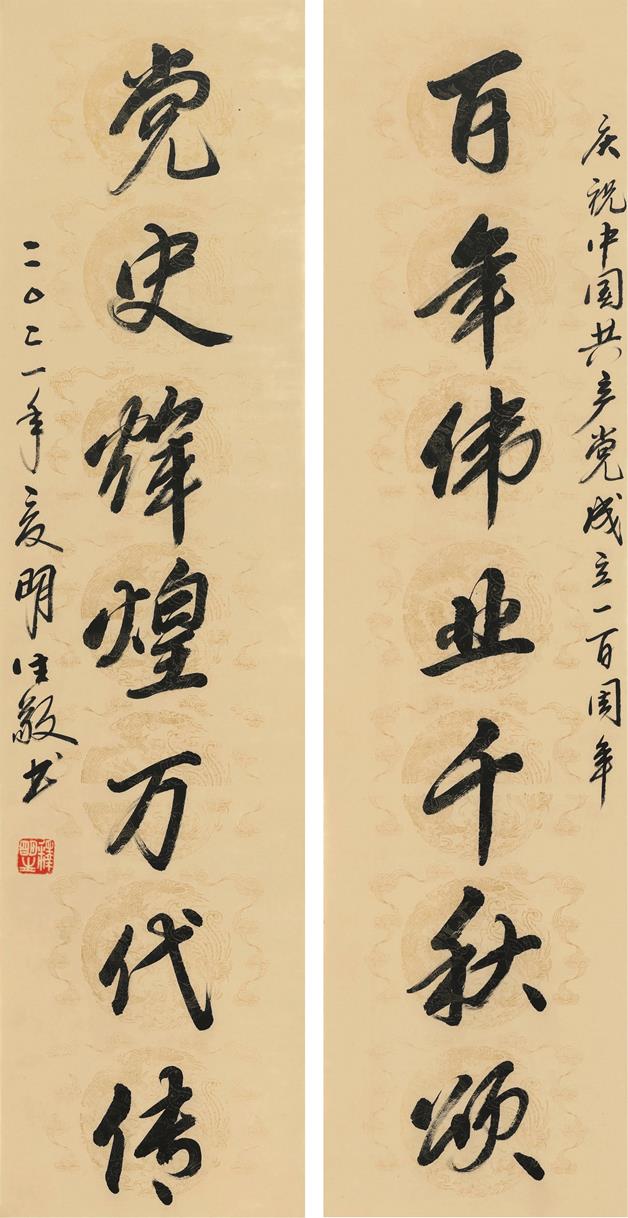 庆祝中国共产党成立一百周年
百年伟业千秋颂
党史辉煌万代传
二〇二一年夏明生敬书